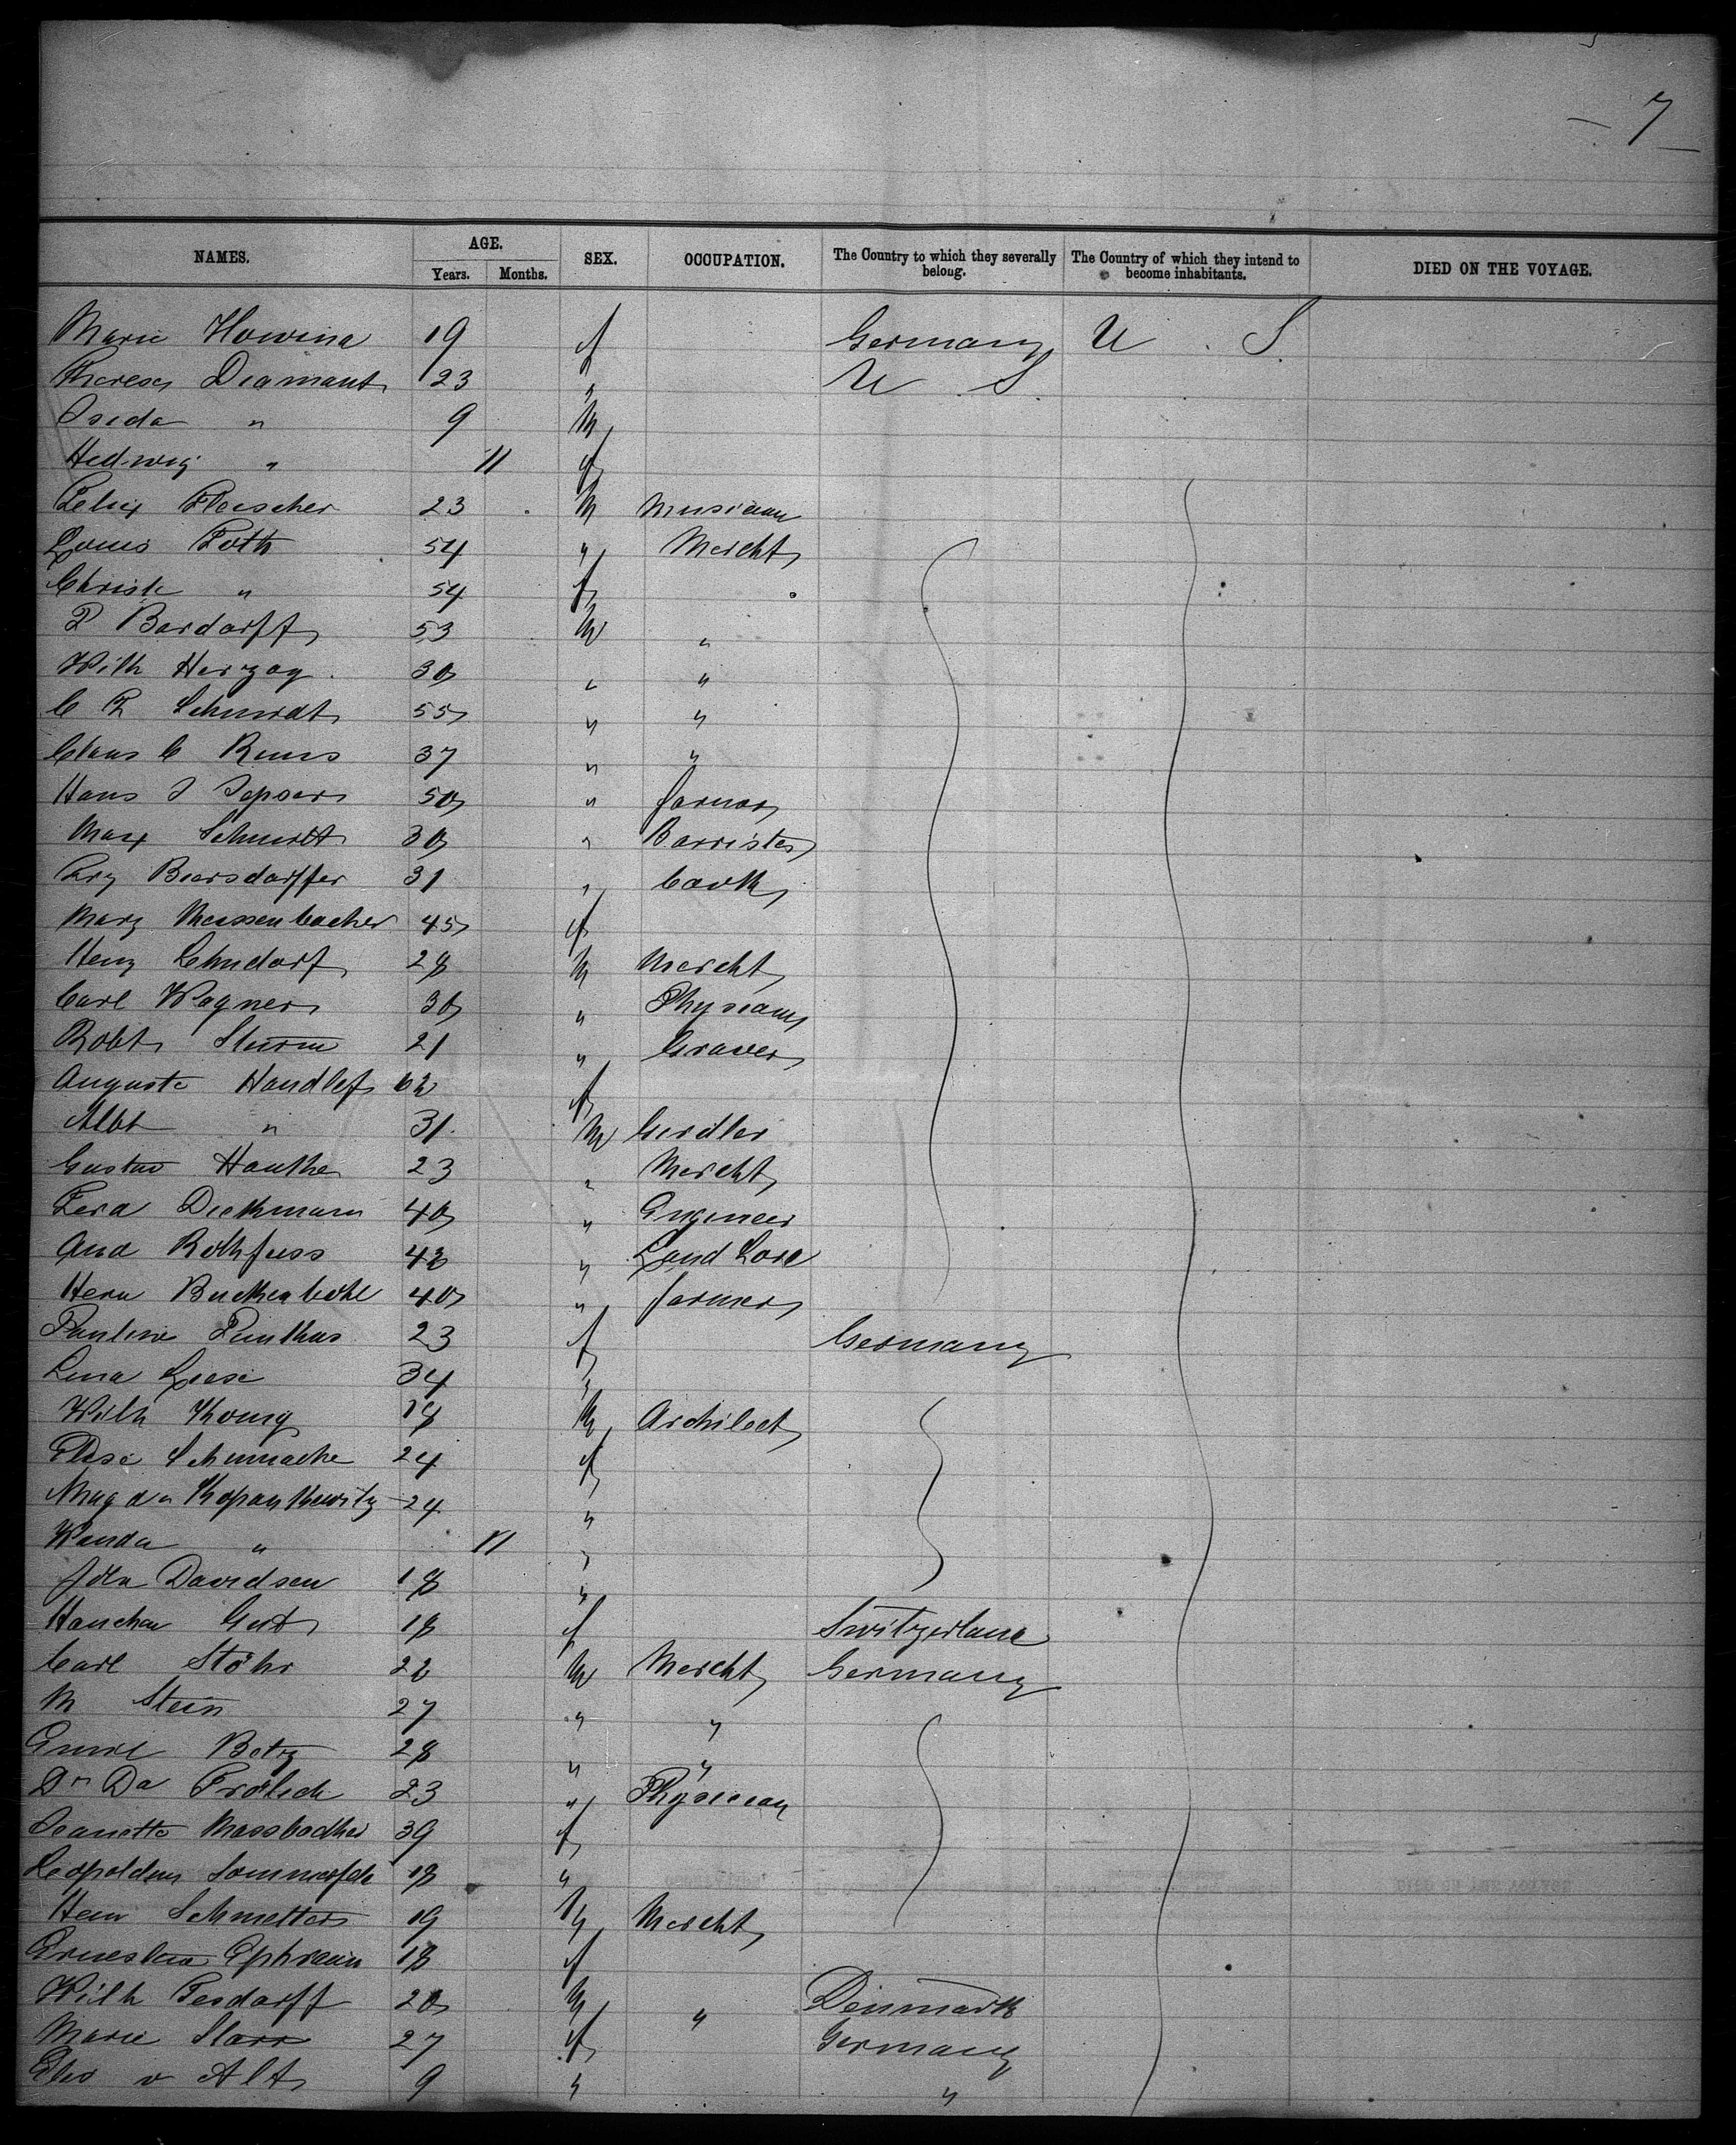 7
NAMES. AGE. Years. Months. SEX. OCCUPATION. The Country to which they severally belong. The Country of which they intend to become inhabitants. DIED ON THE VOYAGE.
Marie Howina 19 f Germany U. S.
Theresa Diamant 23 " U. S.
" 9 M
Hedwig " 11 f
Felix Fleischer 23 M Musician
Louis Foth 54 " Mercht
Christe " 54 f
P Bardorff 53 M "
Wilh Herzog 30 " "
C F Schmidt 55 " "
Claus C Reuss 37 " "
Hans J Jepsen 50 " farmer
Max Schmidt 30 " Barrister
Biersdorffer 31 "
Mary Meissenbacher 45 f
Henz Lehndorf 28 M Mercht
Carl Wagner 30 " Physician
Robt Sturm 21 " Graver
Auguste Handlef 62 f
Albt " 31 M Girdler
Gustav Hauthe 23 " Mercht
Ferd Diekmann 40 " Engineer
And Rothfuss 42 " Land Lord
Herm 40 " farmer
Pauline 23 f Germany
Lina Giese 34 "
Wilh Konig 18 M Architect
Elise Schumache 24 f
Magda 24 "
Wanda " 11 "
Davidsen 18 "
Hanchen Gut 18 f Switzerland
Carl Stöhr 22 M Mercht Germany
M Stein 27 " "
Emil Betz 28 " "
Dr Da Frölich 23 " Physician
Jeanette Massbacher 39 f
Leopoldine Sommerfeld 18 "
Hein Schmetter 19 M Mercht
Ernestina Ephraim 18 f
Wilh Tesdorff 20 M " Denmark
Marie Starr 27 f Germany
v Alt 9 " "